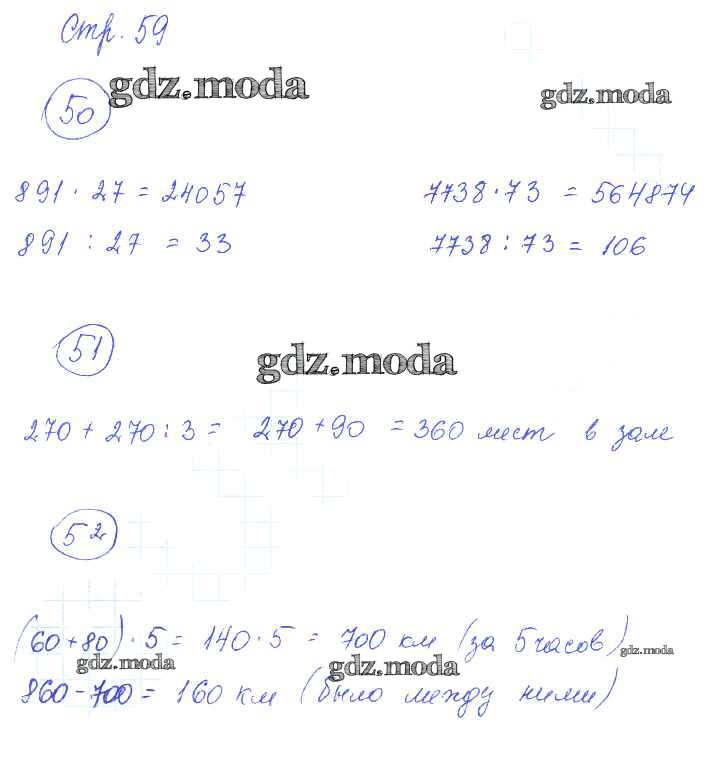 Стр. 59
gdz.moda
50
gdz.moda
891 · 27 = 24057
7738 · 73 = 564874
891 : 27 = 33
7738 : 73 = 106
51
gdz.moda
270 + 270 : 3 = 270 + 90 = 360 мест в зале
52
(60 + 80) · 5 = 140 · 5 = 700 км (за 5 часов)
gdz.moda
gdz.moda
gdz.moda
860 - 700 = 160 км (было между ними)